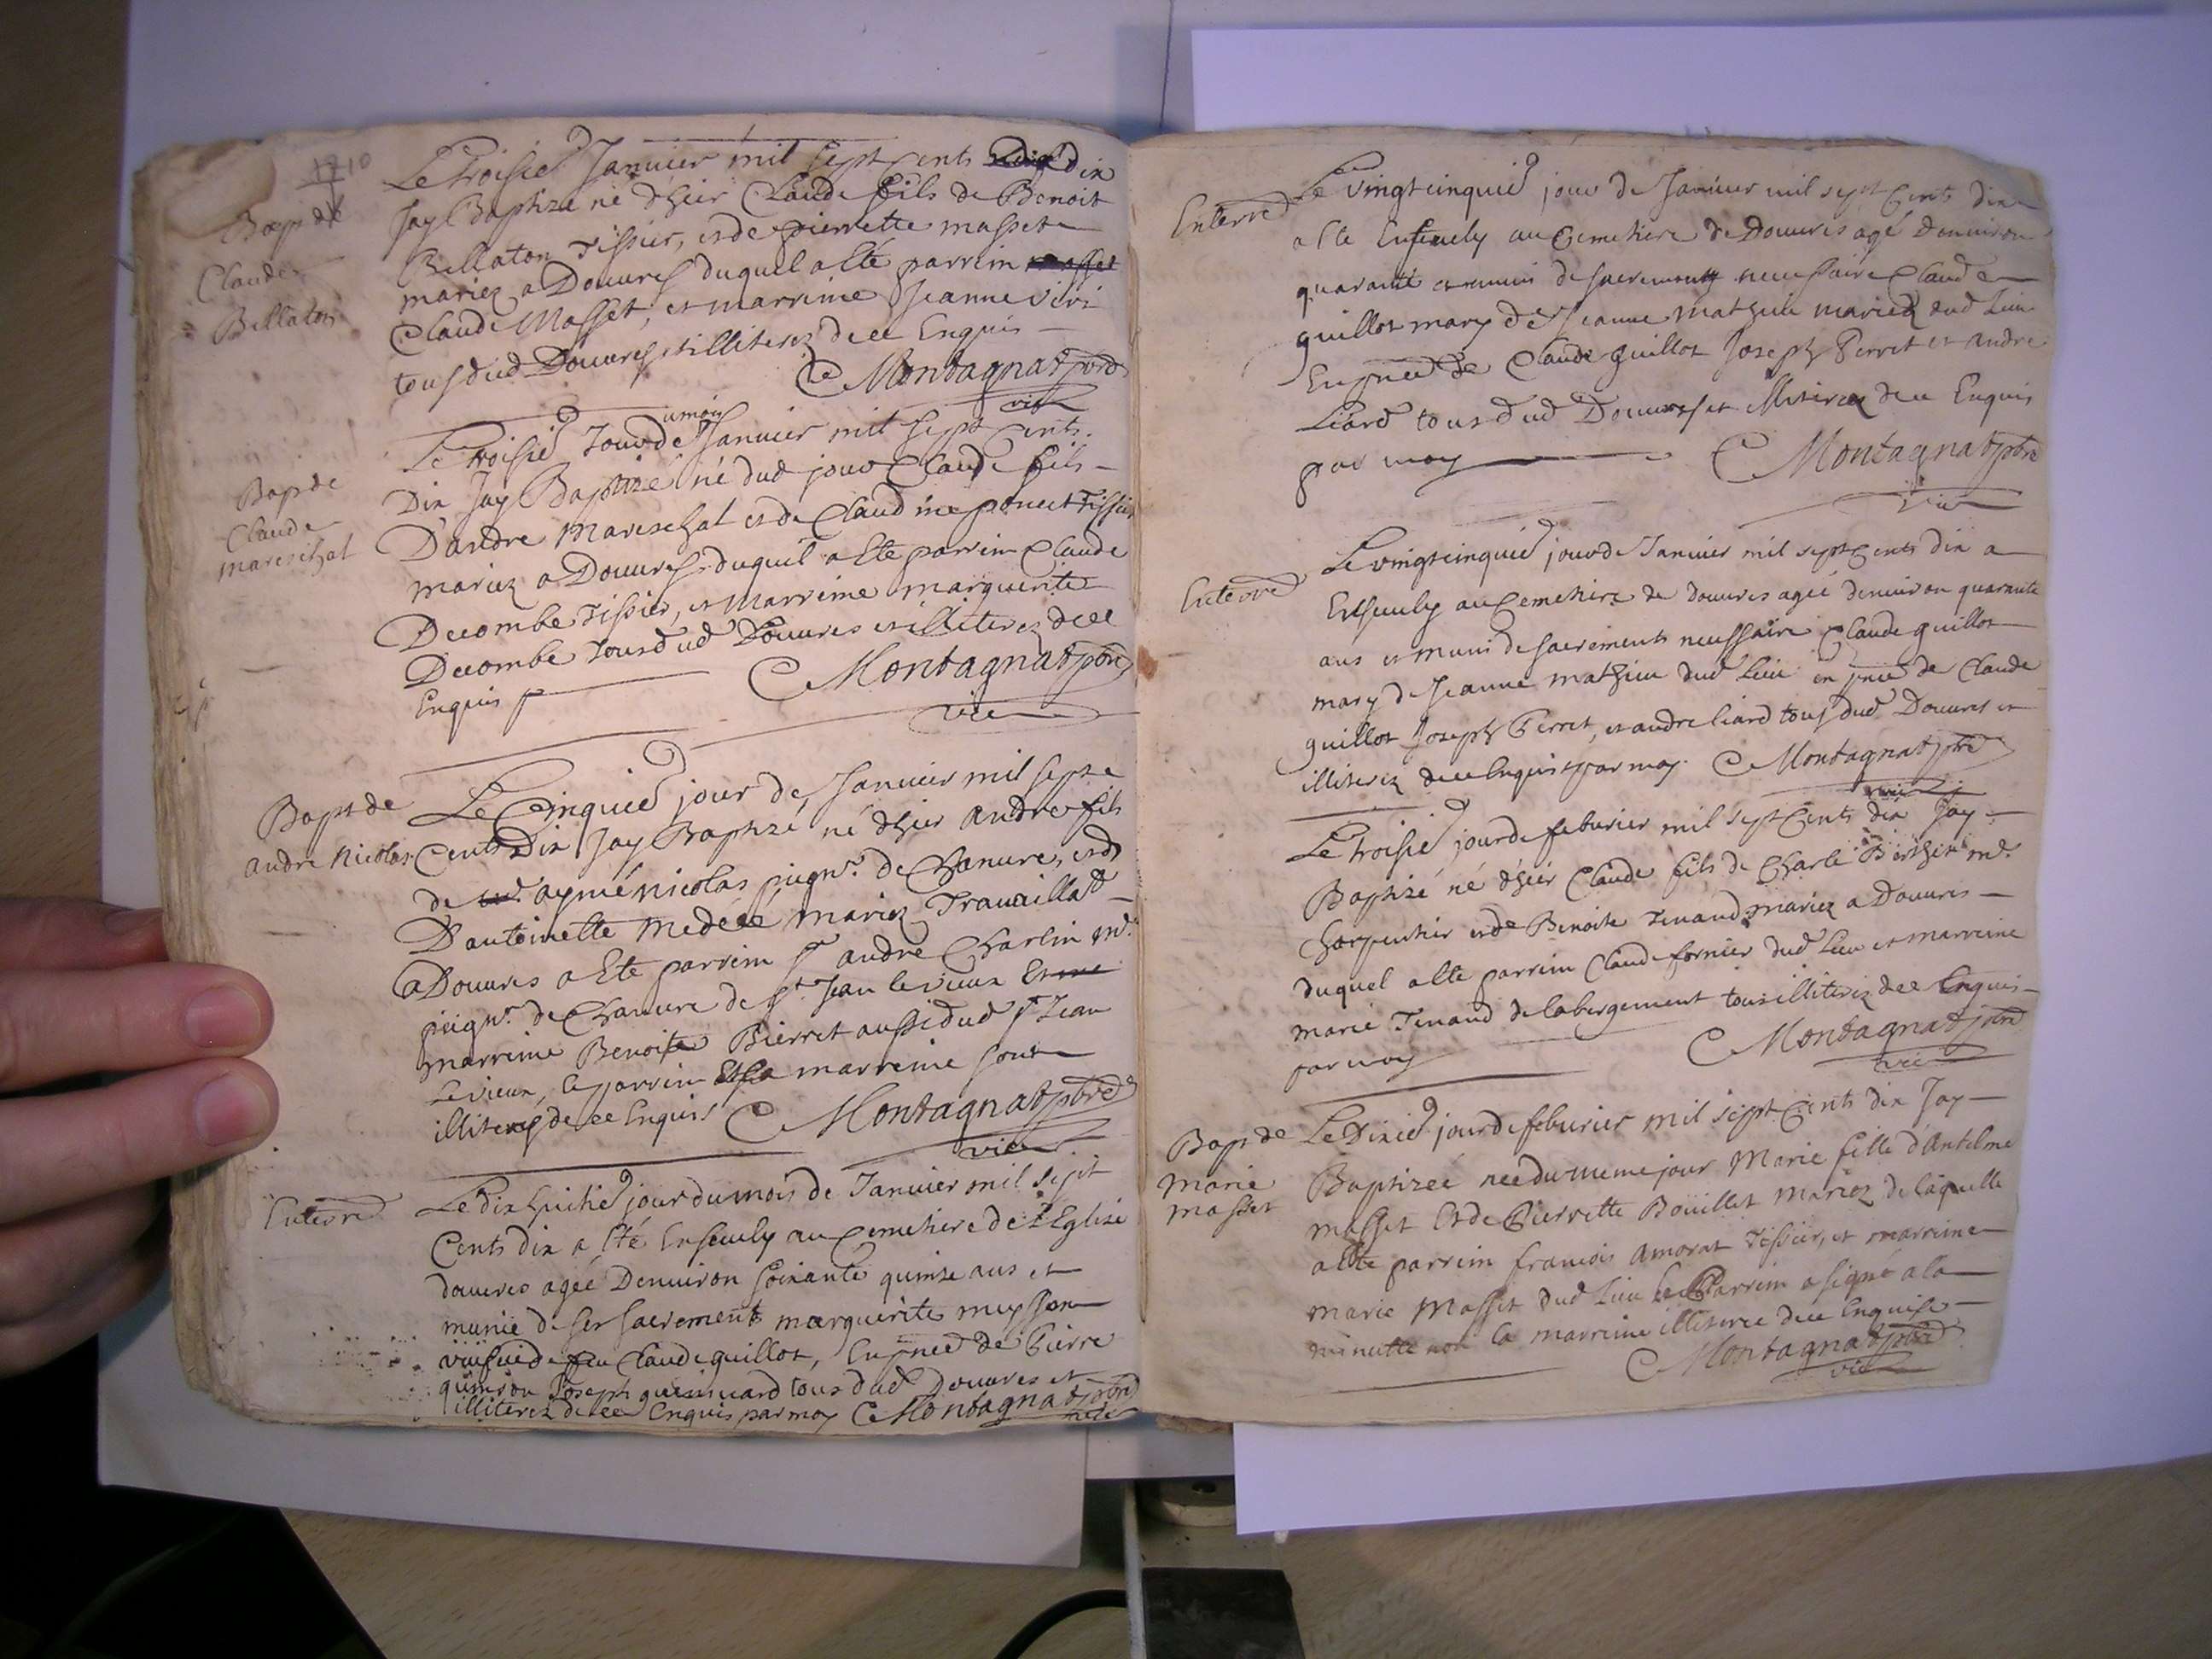 1710
Bap de
Claude
Bellaton
Le troisie Januier mil sept Cents dix
Jay Baptize né dhier Claude fils de Benoit
Bellaton Tissier, et de pierrette masset
mariez a Douures duquel a Eté parrein masset
Claude Masset, et marreine Jeanne Vivi
tous dud Douures et illiterez de ce Enquis
C Montagnat pbre
vic
Bap de
Claude
mareschal
Le troisie Jour de Januier mil sept Cents
Dix Jay Baptizé né dud jour Claude fils
D'andre Mareschal et de Claudine poncet Tissier
mariez a Douures duquel a Ete parrein Claude
Decombe Tissier, et Marreine marguerite
Decombe tous dud Douures et illiterez de ce
Enquis
C Montagnat pbre
vic
Bapt de
andre Nicolas
Le Cinquie jour de Januier mil sept
Cents Dix Jay Baptizé né dhier andre fils
de aymé nicolas pign.r de Chanure, et de
D'antoinette mariez Travaillat
a Douures a Ete parrein s.r andre Charlin m.d
pign.r de Chanure de s.t Jean le vieux Et
marreine Benoite Pierret aussi dud s.t Jean
Levieux, le parrein et la marreine sont
illiterez de ce Enquis C Montagnat pbre
vic
Enterre
Le dix huitie jour du mois de Januier mil sept
Cents dix a Eté Enseuely au Cemetiere de l'Eglise
douures agée Denuiron soixante quinze ans et
munie de ses sacrements marguerite meysson
de feu Claude guillot, En pnce de Pierre
Joseph tous dud Douures et
illiterez de ce Enquis par moy C Montagnat pbre
vic
Enterre
Le vingtcinquie jour de Januier mil sept Cents dix
a Ete Enseuely au Cemetiere de Douures agé Denuiron
quarante et muni de sacrements necessaire Claude
guillot mary de Jeanne mathieu mariez dud Lieu
En pnce de Claude guillot Joseph Perret et andre
Liard tous dud Douures et illiterez de ce Enquis
par moy C Montagnat pbre
vic
Enterre
Le vingtcinquie jour de Januier mil sept Cents dix a
Enseuely au Cemetiere de Douures agée denuiron quarante
ans et muni de sacrements necessaire Claude guillot
mary de Jeanne mathieu dud Lieu en pnce de Claude
guillot Joseph Perret, et andre liard tous dud Douures et
illiterez de ce Enquis par moy. C Montagnat pbre
vic
Le troisie jour de feburier mil sept Cents dix Jay
Baptizé né dhier Claude fils de Charle Berthier m.d
Charpentier et de Benoite Tenand mariez a Douures
duquel a Ete parrein Claude fornier dud Lieu et marreine
marie Tenand de labergement tous illiterez de ce Enquis
par moy C Montagnat pbre
vic
Bap de
Marie
masset
Le Dixie jour de feburier mil sept Cents dix Jay
Baptizeé née du meme jour Marie fille d'Antelme
masset Et de Pierrette Bouillet mariez de laquelle
a Ete parrein francois Amorat Tissier, et marreine
Marie Masset dud Lieu Le Parrein a signé a la
minutte non la marreine illiteree de ce Enquise
C Montagnat pbre
vic